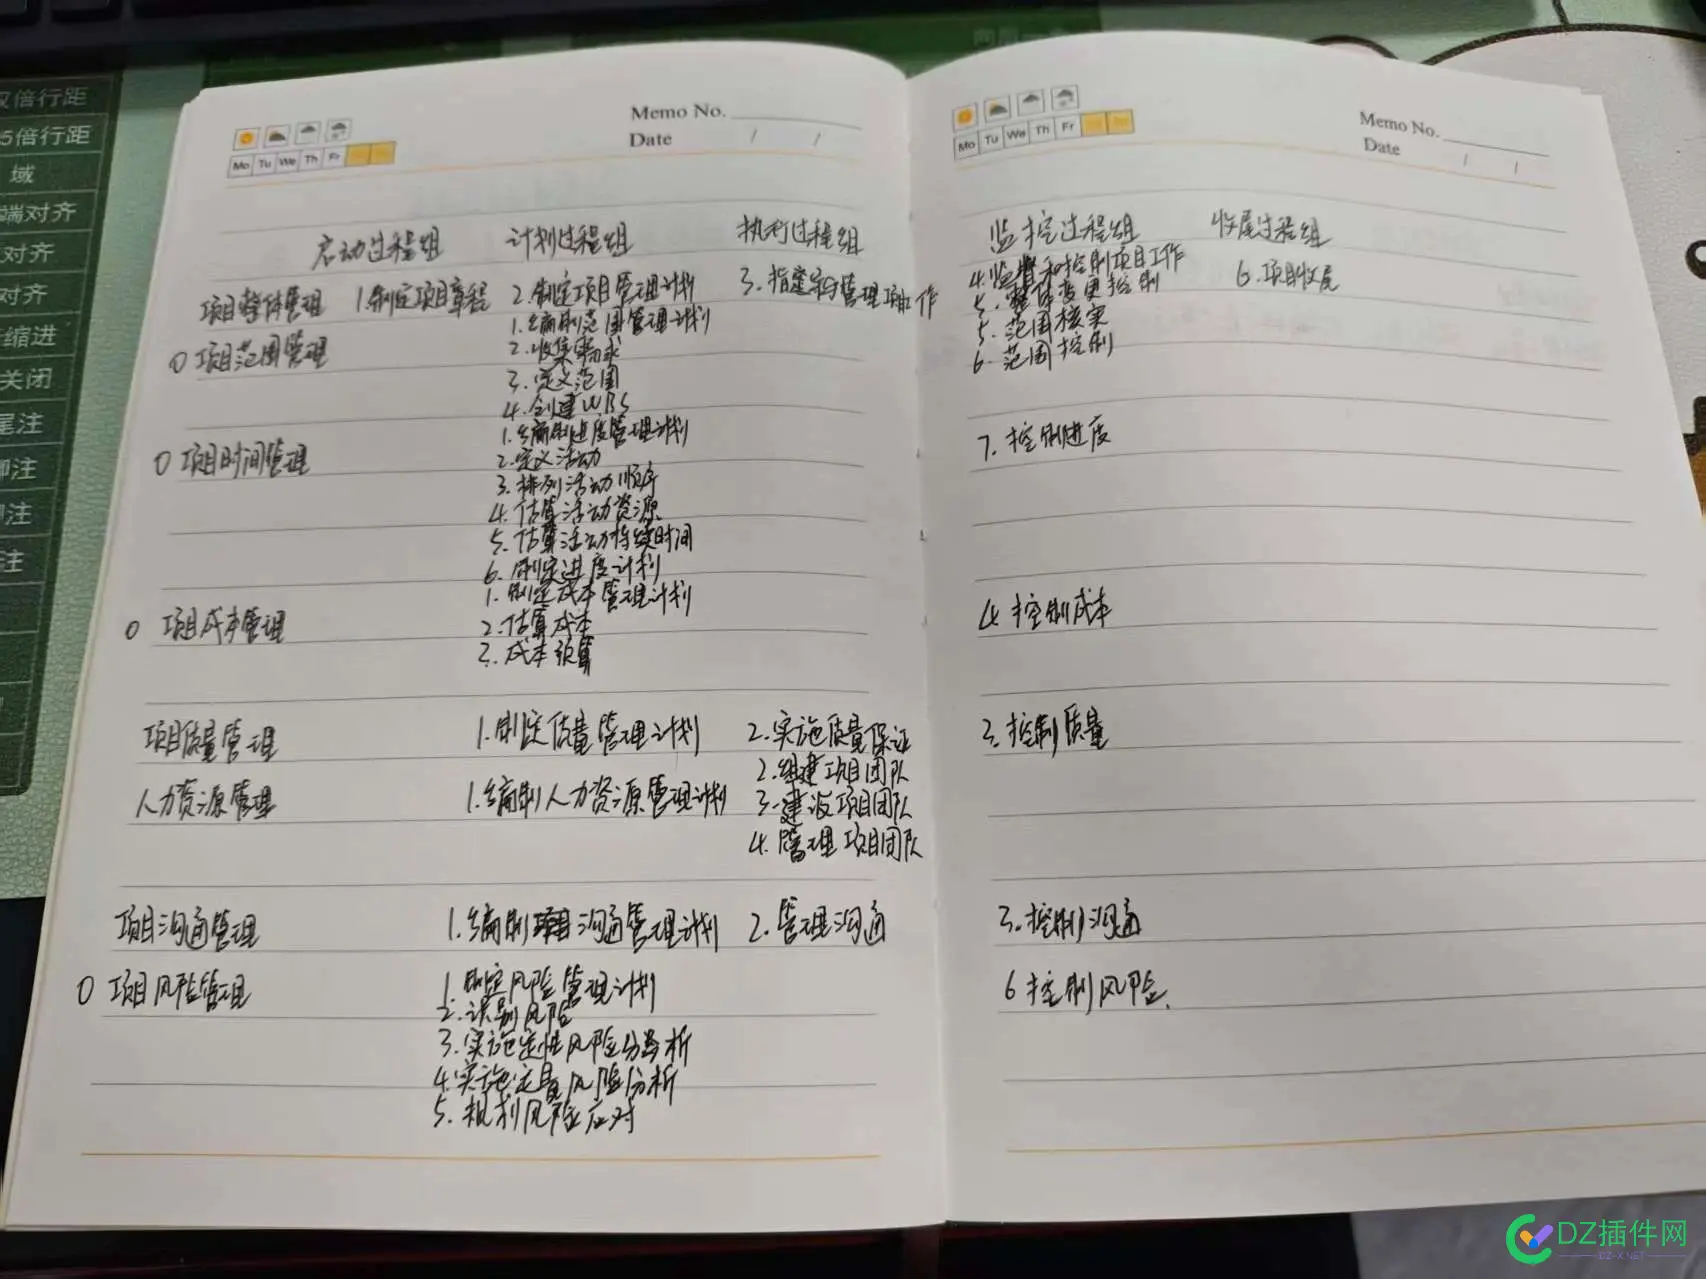 又倍行距
5倍行距
域
端对齐
对齐
对齐
缩进
关闭
尾注
脚注
注
注
Memo No.
Date / /
Mo Tu We Th Fr
启动过程组 计划过程组 执行过程组
项目整体管理 1.制定项目章程 2.制定项目管理计划 3.指导与管理项目工作
1.编制范围管理计划
项目范围管理 2.收集需求
3.定义范围
4.创建WBS
1.编制进度管理计划
项目时间管理 2.定义活动
3.排列活动顺序
4.估算活动资源
5.估算活动持续时间
6.制定进度计划
1.制定成本管理计划
项目成本管理 2.估算成本
3.成本预算
项目质量管理 1.制定质量管理计划 2.实施质量保证
2.组建项目团队
人力资源管理 1.编制人力资源管理计划 3.建设项目团队
4.管理项目团队
项目沟通管理 1.编制沟通管理计划 2.管理沟通
项目风险管理 1.制定风险管理计划
2.识别风险
3.实施定性风险分析
4.实施定量风险分析
5.规划风险应对
Memo No.
Date / /
Mo Tu We Th Fr
监控过程组 收尾过程组
4.监督和控制项目工作 6.项目收尾
5.整体变更控制
5.范围核实
6.范围控制
7.控制进度
4.控制成本
3.控制质量
3.控制沟通
6 控制风险.
DZ插件网
DZ-X.NET